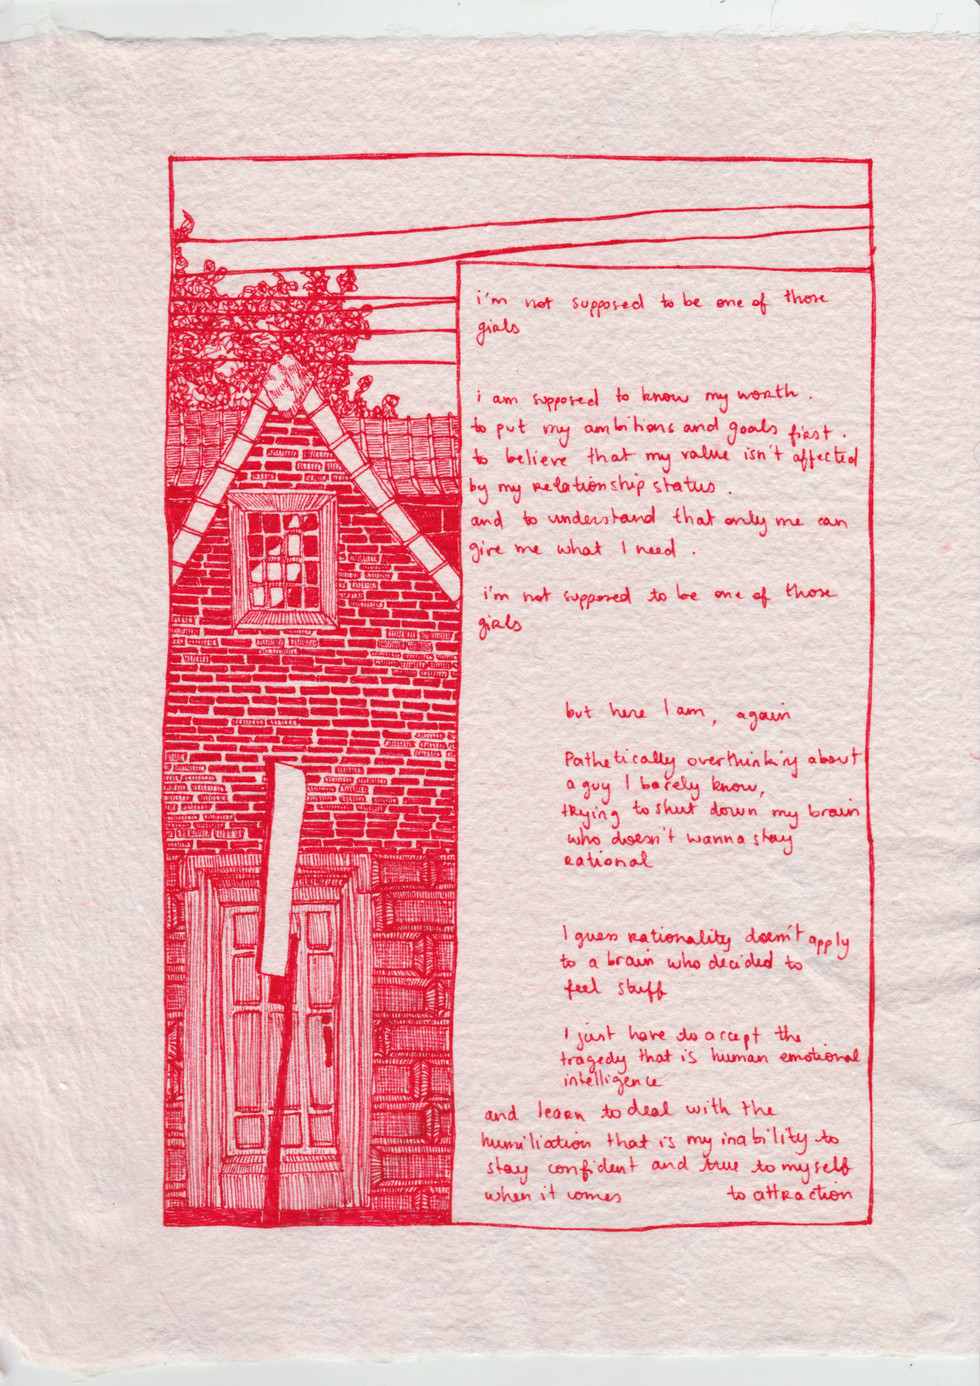 i'm not supposed to be one of those
girls
i am supposed to know my worth.
to put my ambitions and goals first.
to believe that my value isn't affected
by my relationship status.
and to understand that only me can
give me what I need.
i'm not supposed to be one of those
girls
but here I am, again
Pathetically overthinking about
a guy I barely know,
trying to shut down my brain
who doesn't wanna stay
rational
I guess rationality doesn't apply
to a brain who decided to
feel stuff
I just have to accept the
tragedy that is human emotional
intelligence
and learn to deal with the
humiliation that is my inability to
stay confident and true to myself
when it comes to attraction